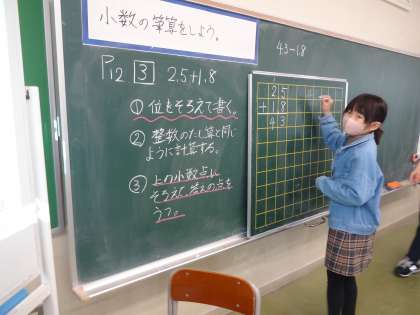 小数の筆算をしよう。
4.5-1.8
P12 3 2.5+1.8
① 位をそろえて書く。
② 整数のたし算と同じ
ように計算する。
③ 上の小数点に
そろえて、答えの点を
うつ。
2 5
+ 1 8
4 3